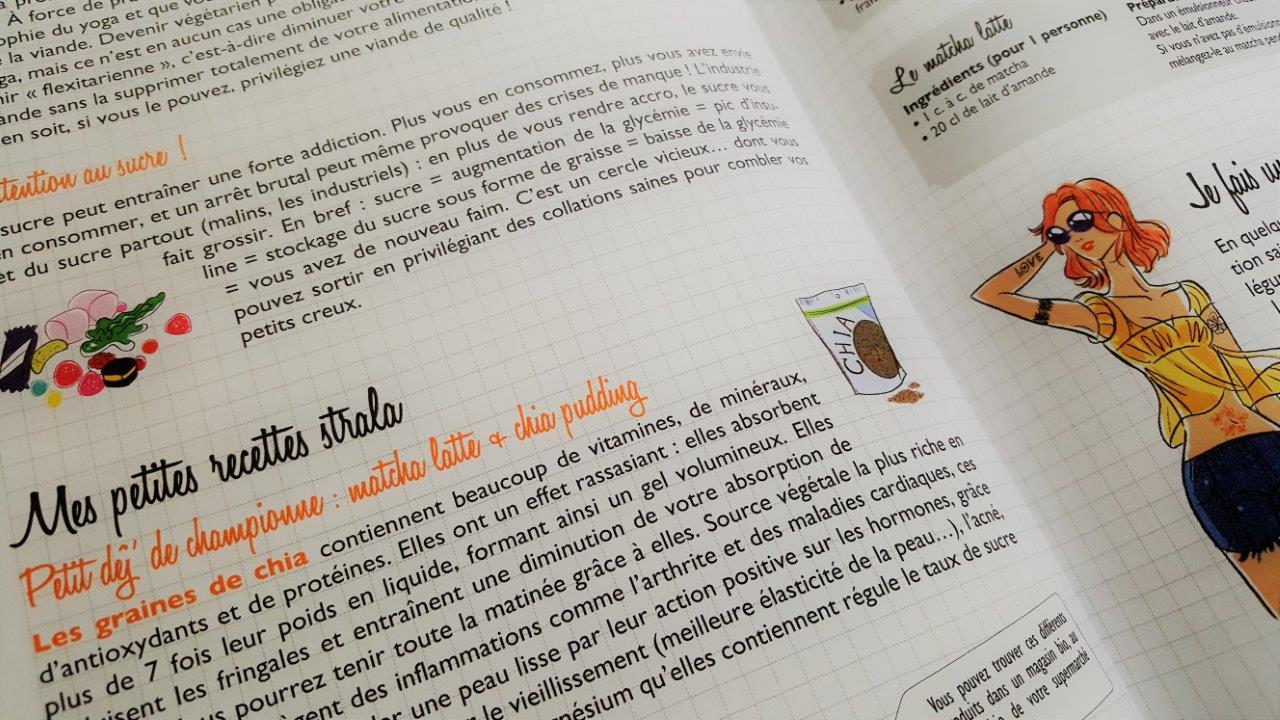 À force de
ophie du yoga et que vous
la viande. Devenir végétarien
ga, mais ce n'est en aucun cas une obligation
nir « flexitarienne », c'est-à-dire diminuer votre
ande sans la supprimer totalement de votre alimentation
en soit, si vous le pouvez, privilégiez une viande de qualité !
ttention au sucre !
sucre peut entraîner une forte addiction. Plus vous en consommez, plus vous avez envie
en consommer, et un arrêt brutal peut même provoquer des crises de manque ! L'industrie
et du sucre partout (malins, les industriels) : en plus de vous rendre accro, le sucre vous
fait grossir. En bref : sucre = augmentation de la glycémie = pic d'insu-
line = stockage du sucre sous forme de graisse = baisse de la glycémie
= vous avez de nouveau faim. C'est un cercle vicieux... dont vous
pouvez sortir en privilégiant des collations saines pour combler vos
petits creux.
CHIA
Mes petites recettes strala
Petit déj' de championne : matcha latte & chia pudding
Les graines de chia contiennent beaucoup de vitamines, de minéraux,
d'antioxydants et de protéines. Elles ont un effet rassasiant : elles absorbent
plus de 7 fois leur poids en liquide, formant ainsi un gel volumineux. Elles
isent les fringales et entraînent une diminution de votre absorption de
us pourrez tenir toute la matinée grâce à elles. Source végétale la plus riche en
gent des inflammations comme l'arthrite et des maladies cardiaques, ces
er une peau lisse par leur action positive sur les hormones, grâce
le vieillissement (meilleure élasticité de la peau...), l'acné,
nésium qu'elles contiennent régule le taux de sucre
Vous pouvez trouver ces différents
oduits dans un magasin bio, au
de votre supermarché
Le matcha latte
Ingrédients (pour 1 personne)
• 1 c. à c. de matcha
• 20 cl de lait d'amande
Dans un émulsionneur
avec le lait d'amande.
Si vous n'avez pas d'émulsion
mélangez-le au matcha
Je fais
LOVE
En quelq
tion sa
légu